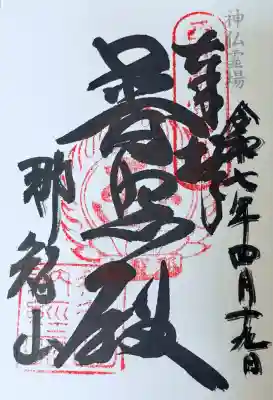 神仏霊場
奉拝
令和七年四月十九日
普照殿
那智山